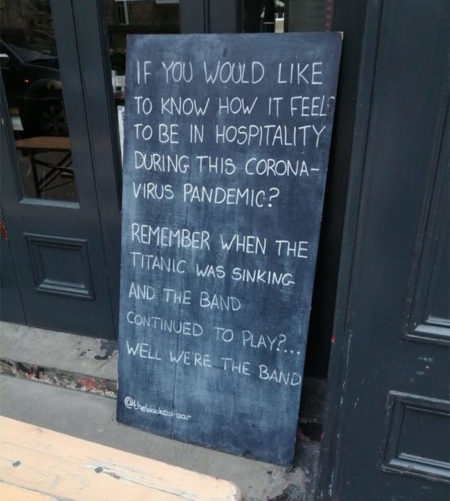 IF YOU WOULD LIKE
TO KNOW HOW IT FEELS
TO BE IN HOSPITALITY
DURING THIS CORONA-
VIRUS PANDEMIC?
REMEMBER WHEN THE
TITANIC WAS SINKING
AND THE BAND
CONTINUED TO PLAY?...
WELL WE'RE THE BAND
@theblackcatbar